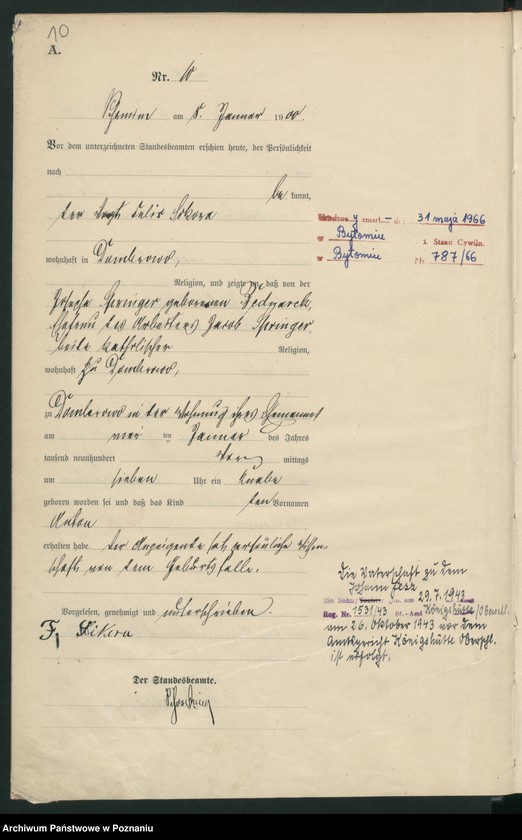 10
A.
Nr. 10
am 5. Januar 1900.
Vor dem unterzeichneten Standesbeamten erschien heute, der Persönlichkeit
nach
bekannt,
der Felix Sikora
wohnhaft in Dombrowo,
Religion, und zeigte an, daß von der
Josepha Springer geborenen Bednarek,
Ehefrau des Arbeiters Jacob Springer,
beide katholischer Religion,
wohnhaft zu Dombrowo,
zu Dombrowo in der Wohnung ihres Ehemannes
am ten Januar des Jahres
tausend neunhundert Vormittags
um sieben Uhr ein Knabe
geboren worden sei und daß das Kind den Vornamen
Anton
erhalten habe. Der Anzeigende hat persönliche Wissen-
schaft von dem Geburtsfalle.
Vorgelesen, genehmigt und unterschrieben.
F. Sikora
Der Standesbeamte.
y zmarł – dn. 31 maja 1966
w Bytomiu
Stanu Cywiln.
w Bytomiu Nr. 787/66
Die Vaterschaft zu dem
Johann
Ein Sohn/ am 29.7.1943
Reg. Nr. 1531/43 St.-Amt Königshütte/Oberschl.
am 26. Oktober 1943 vor dem
Amtsgericht Königshütte Oberschl.
ist erfolgt.
Archiwum Państwowe w Poznaniu